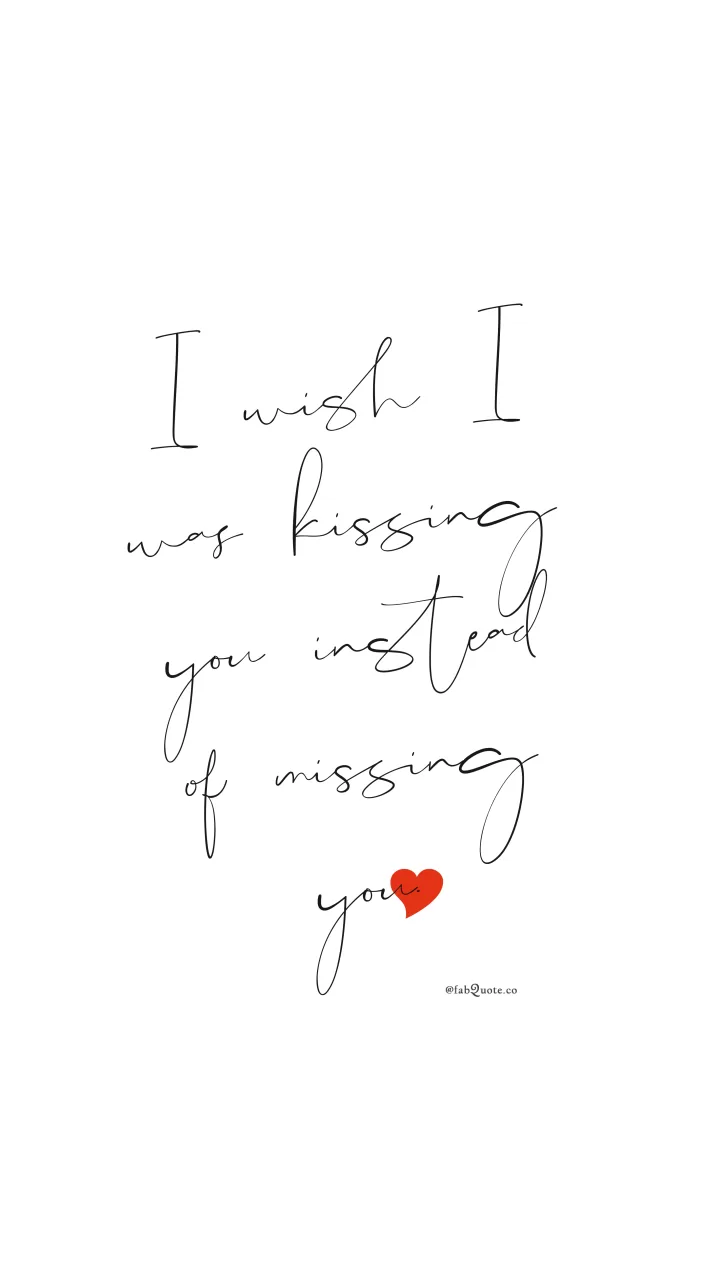 I wish I
was kissing
you instead
of missing
you.
@fabQuote.co